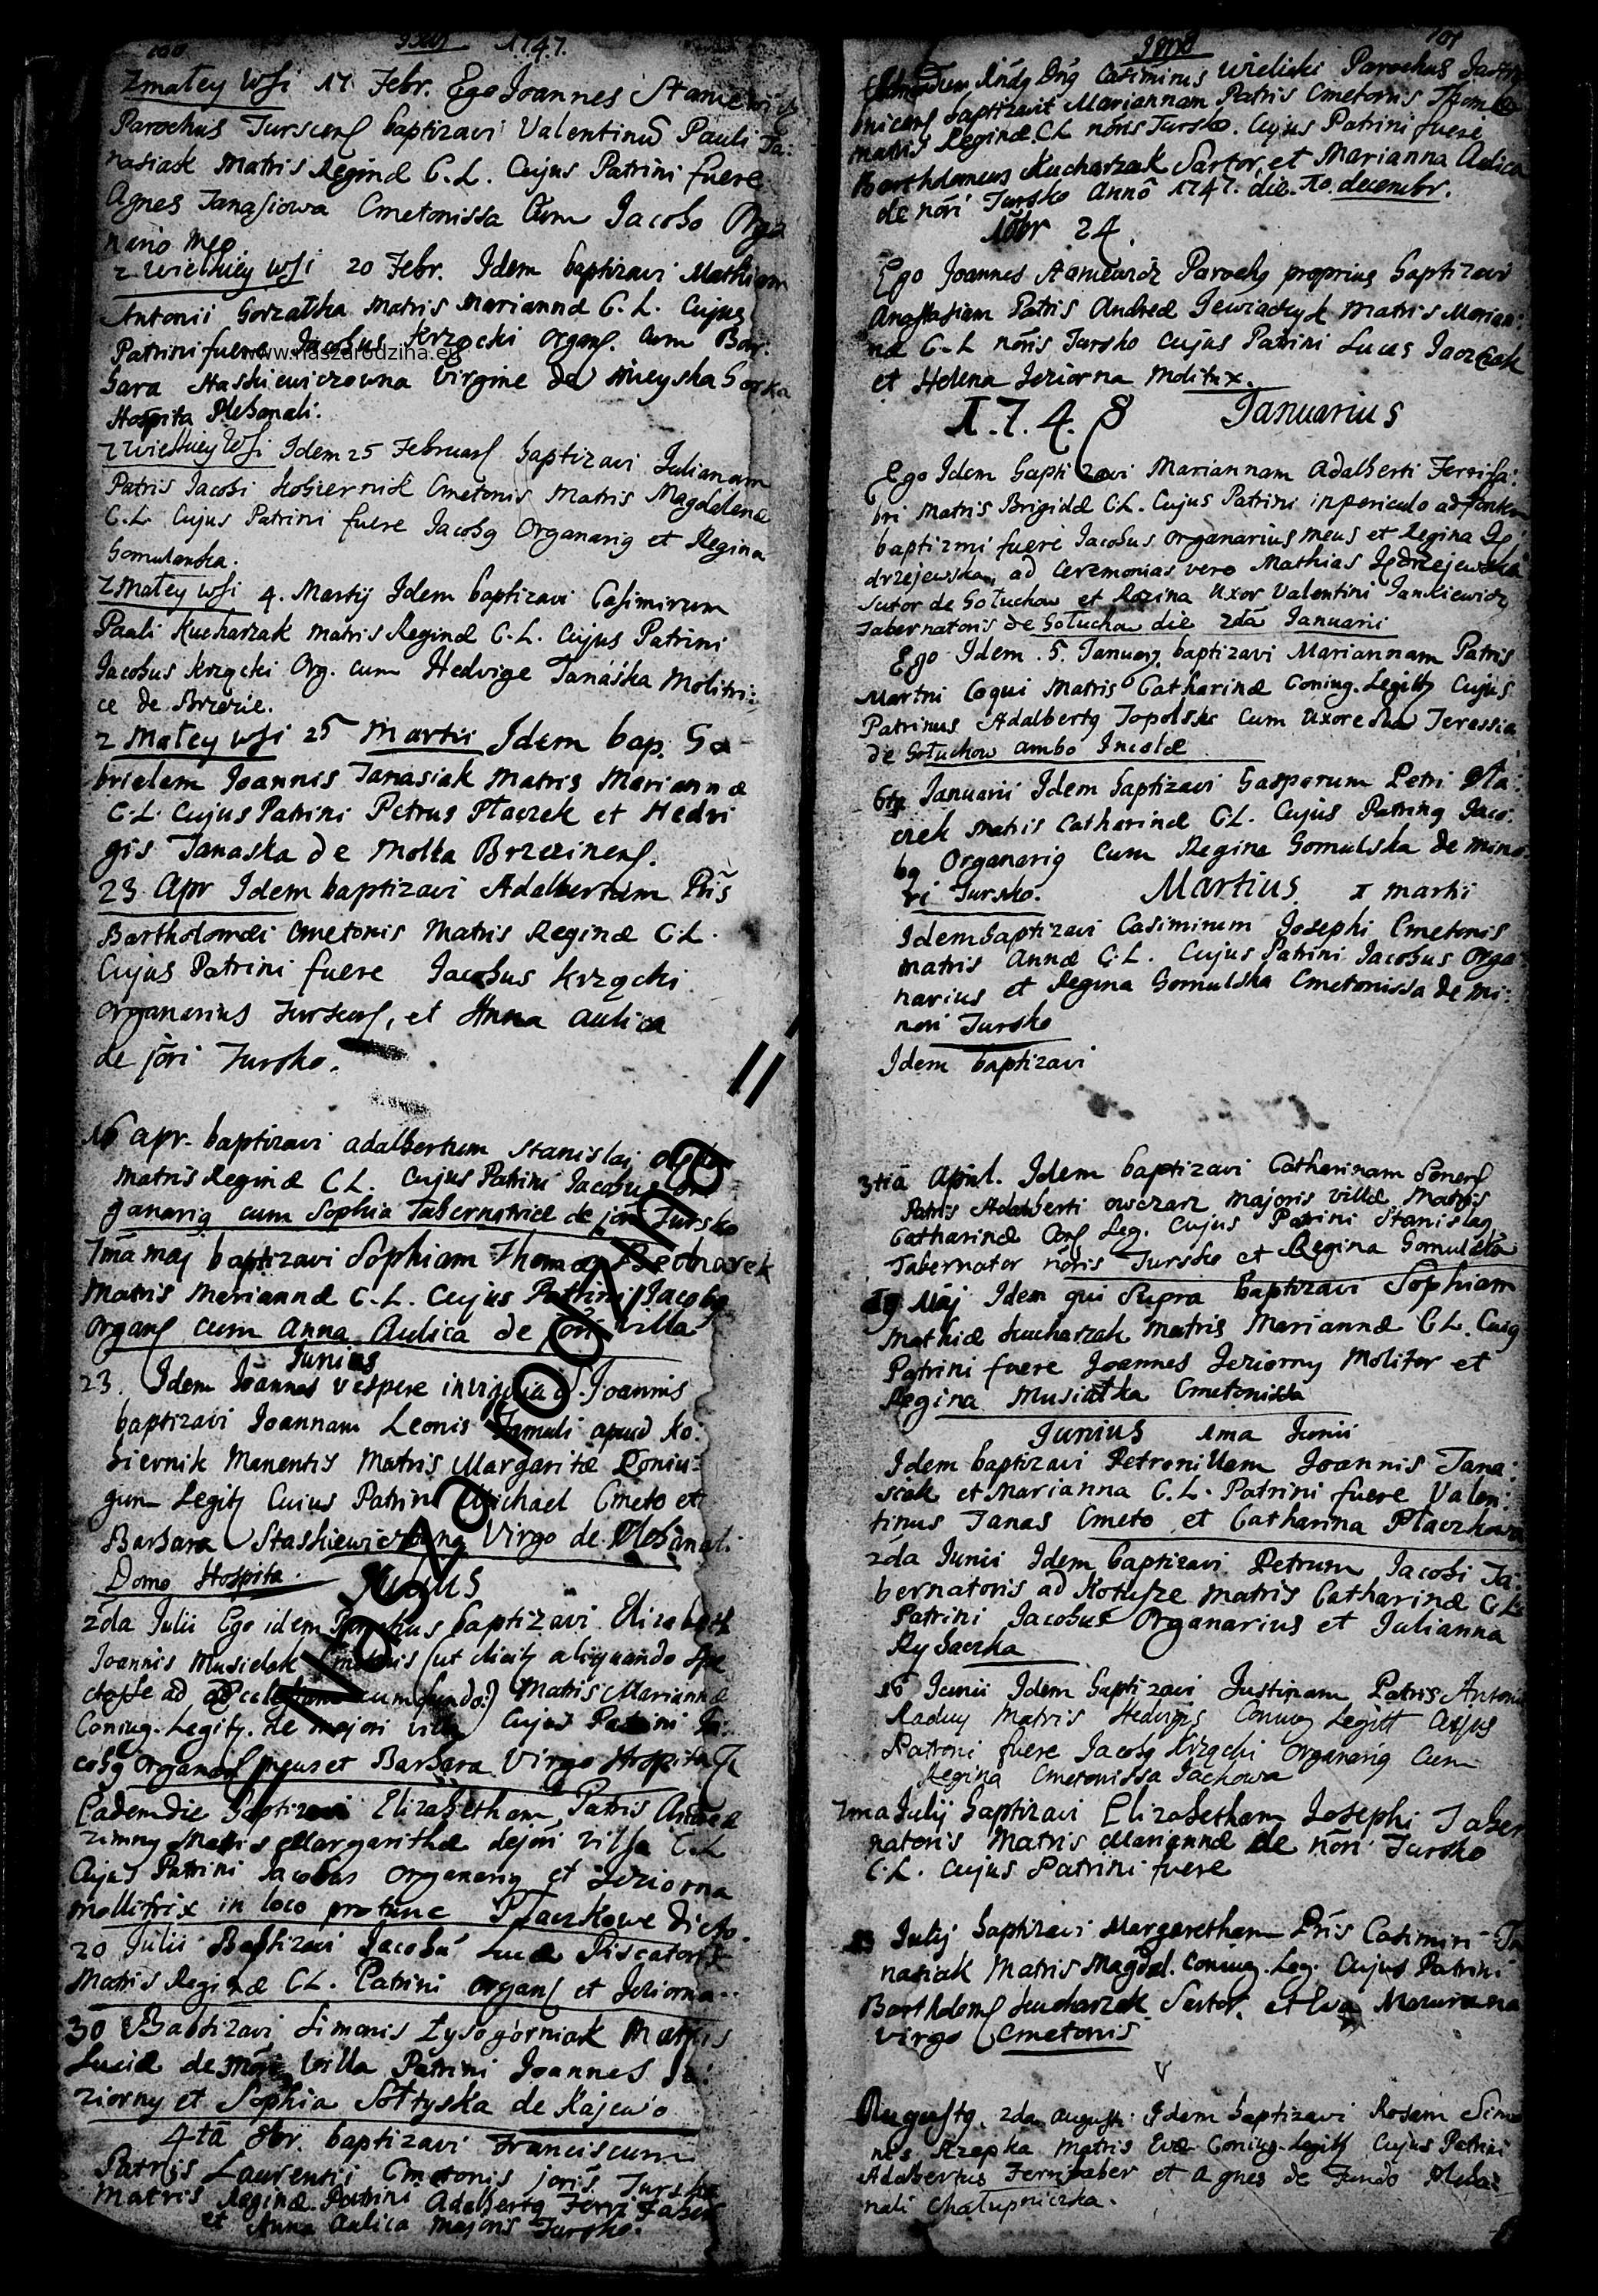 100
1747.
Zmałey Wsi 17 Febr. Ego Joannes Staniewicz
Parochus Turscens baptizavi Valentinũ Pauli Ta:
nasiak Matris Reginæ C. L. Cujus Patrini fuere
Agnes Tanasiowa Cmetonissa Cum Jacobo Orga
nario Meo.
z Wielkiey Wsi 20 Febr. Idem baptizavi Mathiam
Antonii Gorzałka Matris Mariannæ C. L. Cujus
Patrini fuere Jacobus Krzącki Organs. Cum Bar:
www.naszarodzina.eu
bara Staskiewiczowna Virgine de Mieyska Gorka
Hospita Plebanali.
z Wielkiey Wsi Idem 25 Februars baptizavi Julianam
Patris Jacobi Kobiernik Cmetonis Matris Magdalenæ
C. L. Cujus Patrini fuere Jacobq Organariq et Regina
Gomulanka.
Zmałey Wsi 4. Martij Idem baptizavi Casimirum
Pauli Kucharzak Matris Reginæ C. L. Cujus Patrini
Jacobus Krzącki Org. cum Hedvige Tanaśka Molitri:
ce de Brzezie.
z Małey Wsi 25 Martii Idem bap. Ga
brielem Joannis Tanasiak Matris Mariannæ
C. L. Cujus Patrini Petrus Płaczek et Hedvi
gis Tanaska de Molka Brzezinens.
23 Apr Idem baptizavi Adalbertum Pñs
Bartholomæi Cmetonis Matris Reginæ C. L.
Cujus Patrini fuere Jacobus Krzącki
Organarius Turscens, et Anna Aulica
de jõri Tursko.
16 apr. baptizavi adalbertum Stanislai
Matris Reginæ C L. Cujus Patrini Jacobus Or
ganariq cum Sophia Tabernatrice de jõri Tursko
7mã maj baptizavi Sophiam Thomæ Bednarek
Matris Mariannæ C. L. Cujus Patrini Jacobq
Organs cum Anna Aulica de jõri villa
Junius
23. Idem Joannes vespere in vigilia S. Joannis
baptizavi Joannam Leonis Famuli apud Ko:
biernik Manentis Matris Margaritæ Coniu:
gum Legit Cuius Patrini Michael Cmeto et
Barbara Staskiewiczowna Virgo de Plebanali
Domo Hospita.
Julius
2da Julii Ego idem Parochus baptizavi Elizabeth
Joannis Musielak Cmetonis (ut dicit aliquando
ad cum fundo:) Matris Mariannæ
Coniug. Legit. de majori villa Cujus Patrini Ja:
cobq Organars meus et Barbara Virgo Hospita
Eadem die baptizavi Elizabetham Patris Andreæ
Zimny Matris Margarithæ de jõri Villa C. L
Cujus Patrini Jacobus Organariq et Jeziorna
mollitrix in loco pro tunc Płaczkowe dicto.
20 Julii Baptizavi Jacobũ Lucæ Piscatoris
Matris Reginæ C L. Patrini Organs et Jeziorna.
30 Baptizavi Simonis Łysogorniak Matris
Luciæ de Villa Patrini Joannes Je:
ziorny et Sophia Sołtyska de Kajewo
4tã 8br. baptizavi Franciscum
Patris Laurentii Cmetonis jõris Tursko
Matris Reginæ Patrini Adalbertq Ferri Faber
et Anna Aulica Majoris Tursko.
101
Eadem Rñdq Dñq Casimirus Wielicki Parochus
baptizavit Mariannam Patris Cmetonis Thomæ
Matris Reginæ C L nõris Tursko. Cujus Patrini fuere
Bartholomeus Kucharzak Sartor, et Marianna Aulica
de nõri Tursko Anno 1747. die. 10. decembr.
10br 24.
Ego Joannes Staniewicz Parochq propriuq baptizavi
Anastasiam Patris Andreæ Matris Marian:
næ C. L nõris Tursko Cujus Patrini Lucas
et Helena Jeziorna Molitrix.
1. 7. 4. 8 Januarius
Ego Idem baptizavi Mariannam Adalberti Ferrifa:
bri Matris Brigidæ C L. Cujus Patrini in periculo ad fontem
baptizmi fuere Jacobus Organarius meus et Regina Ję
drzejewska, ad Ceremonias vero Mathias Jędrzejewski
Sutor de Gołuchow et Rozina Uxor Valentini Jankiewicz
Tabernatoris de Gołuchow die 2dã Januarii
Ego Idem. 5. Januarij baptizavi Mariannam Patris
Martini Coqui Matris Catharinæ Coniug. Legitt Cujus
Patrinus Adalbertq Topolski Cum Uxore Sua Teressia
de Gołuchow ambo Incolæ
6ta Januarii Idem baptizavi Gasparum Petri Pła:
czek Matris Catharinæ C L. Cujus Patrinq Jaco:
bq Organariq Cum Regina Gomulska de mino
ri Tursko. Martius. I martii
Idem baptizavi Casimirum Josephi Cmetonis
Matris Annæ C. L. Cujus Patrini Jacobus Orga
narius et Regina Gomulska Cmetonissa de mi:
nori Tursko
Idem baptizavi
3tiã April. Idem baptizavi Catharinam
Patris Adalberti owczarz majoris villæ Matris
Catharinæ Leg. Cujus Patrini Stanislaq
Tabernator nõris Tursko et Regina Gomulska
Maj Idem qui Supra baptizavi Sophiam
Mathiæ Kucharzak Matris Mariannæ C L. Cuiq
Patrini fuere Joannes Jeziorny Molitor et
Regina Musiałka Cmetonissa
Junius 1ma Junii
Idem baptizavi Petronillam Joannis Tana:
siak et Marianna C. L. Patrini fuere Valen:
tinus Tanas Cmeto et Catharina Płaczkowa
2da Junii Idem baptizavi Petrum Jacobi Ta:
bernatoris ad Kotusze Matris Catharinæ C L
Patrini Jacobus Organarius et Julianna
Rybaczka
16 Junii Idem baptizavi Justinam Patris Antonii
Raduy Matris Hedvigis Coniug Legitt Cujus
Patrini fuere Jacobq Krzącki Organariq Cum
Regina Cmetonissa Jachowa
7ma Julij baptizavi Elizabetham Josephi Taber
natoris Matris Mariannæ de nõri Tursko
C. L. Cujus Patrini fuere
Julij baptizavi Margaretham Pris Casimiri Ta
nasiak Matris Magdal. Coniug. Leg. Cujus Patrini
Bartholoms Kucharzak Sartor. et Eva
virgo Cmetonis
Augustq. 2da August: Idem baptizavi Rosam Simo
nis Rzepka Matris Evæ Coniug. Legitt Cujus Patrini
Adalbertus Ferrifaber et Agnes de Fundo Pleba:
nali Chałupniczka.
Nasza rodzina //